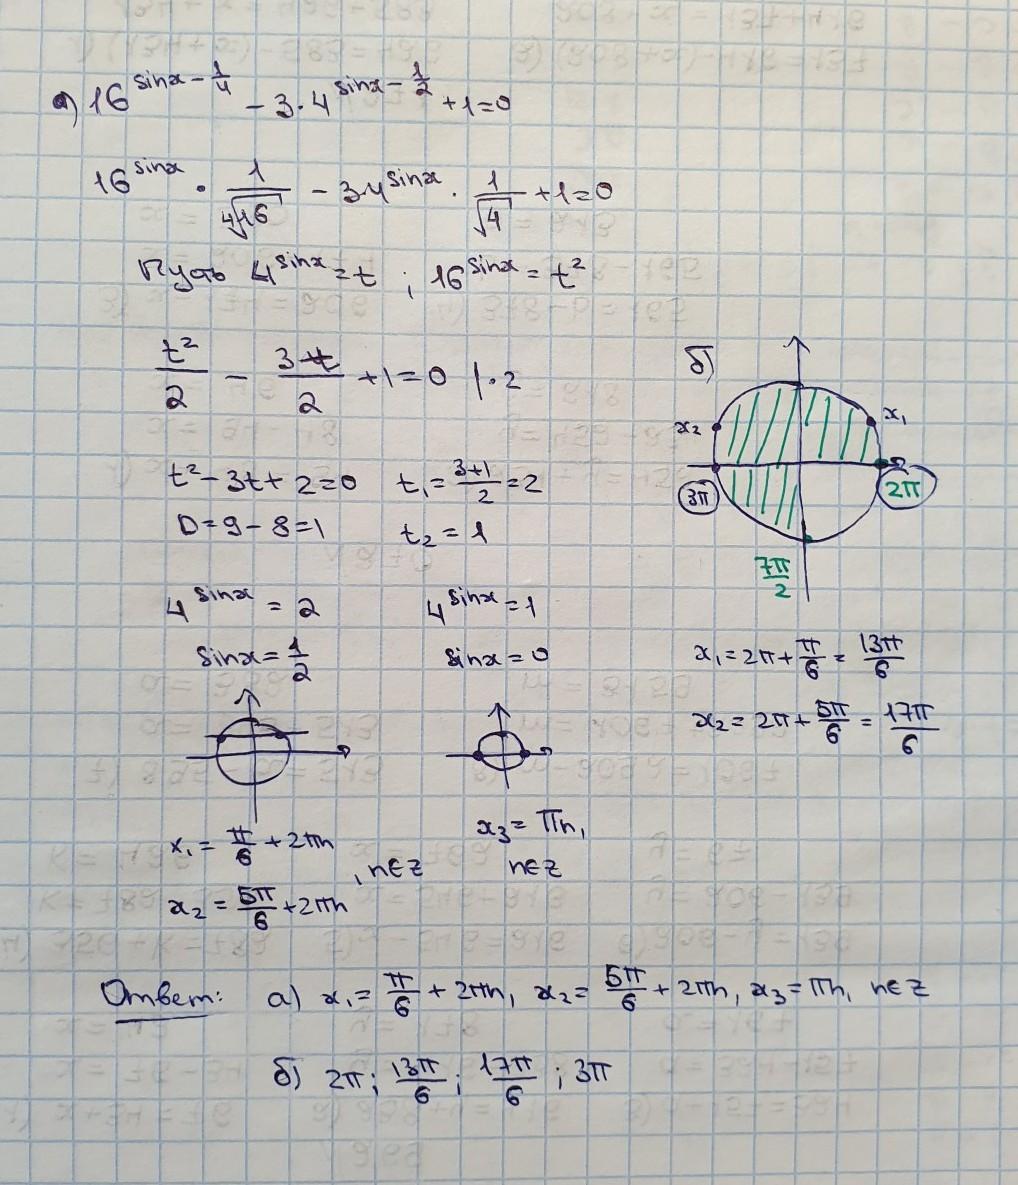 а) 16^(sinx − 1/4) − 3·4^(sinx − 1/2) + 1 = 0
16^(sinx) · 1/⁴√16 − 3·4^(sinx) · 1/√4 + 1 = 0
Пусть 4^(sinx) = t ; 16^(sinx) = t²
t²/2 − 3t/2 + 1 = 0 | ·2
t² − 3t + 2 = 0 t₁ = (3+1)/2 = 2
D = 9 − 8 = 1 t₂ = 1
4^(sinx) = 2 4^(sinx) = 1
sinx = 1/2 sinx = 0
x₁ = π/6 + 2πn
x₂ = 5π/6 + 2πn
, n∈Z
x₃ = πn,
n∈Z
б)
x₂ x₁
3π 2π
7π/2
x₁ = 2π + π/6 = 13π/6
x₂ = 2π + 5π/6 = 17π/6
Ответ: а) x₁ = π/6 + 2πn, x₂ = 5π/6 + 2πn, x₃ = πn, n∈Z
б) 2π; 13π/6; 17π/6; 3π